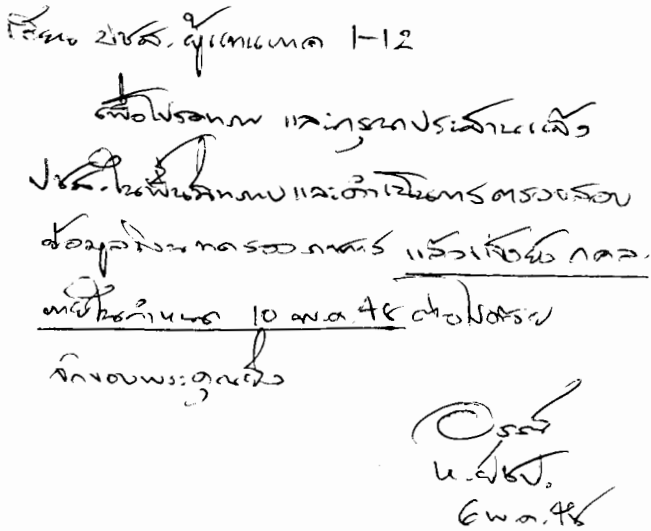 เรียน ปชส. ผู้แทนเขต 1-12
เพื่อโปรดทราบ และกรุณาประสานแจ้ง
ปชส. ในพื้นที่ทราบและดำเนินการตรวจสอบ
ข้อมูล แล้วส่งยัง กคล.
ภายในกำหนด 10 พ.ค. 48 ต่อไปด้วย
จักขอบพระคุณยิ่ง
6 พ.ค. 48